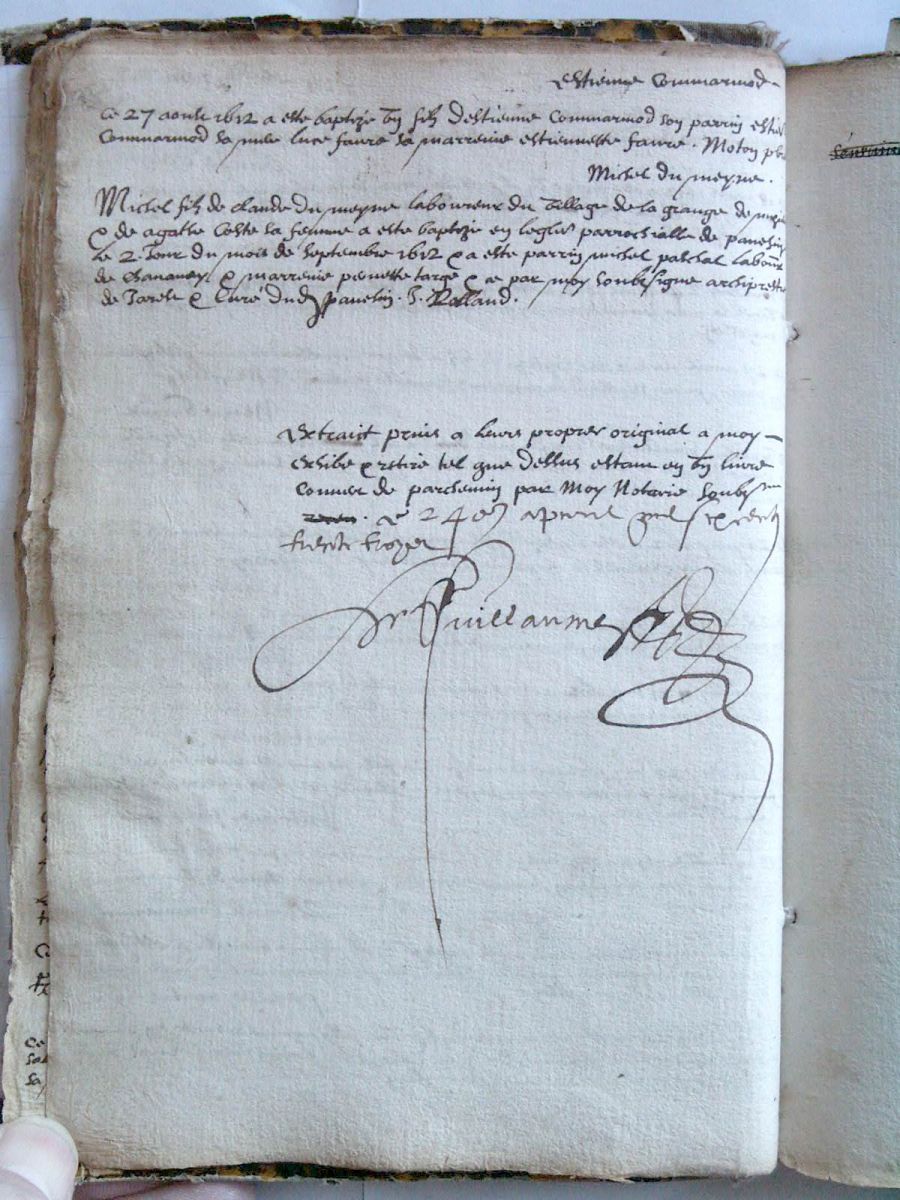 Estienne Commarmod
Ce 27 aoust 1612 a este baptize un filz destienne Commarmod son parrin estie
Commarmod sa mere luce faure sa marreine estiennette faure. Moton pbr
Michel du meyne.
Michel filz de claude du meyne laboureur du village de la grange de
& de agathe Coste sa femme a este baptize en leglise parrochialle de pavesin
le 2 Jour du mois de septembre 1612 & a este parrin michel paschal labour
de chavanay & marreine & ce par moy soubsigne archiprestre
de Jarese & Curé dud pavesin. J. Rolland.
Extraict prins a leurs propres original a moy
exhibe & retire tel que dessus estant en un livre
couvert de parchemin par Moy Notaire soubs
ce 24e apvril mil six cents
trente troys
Guillaume
Ce
sa